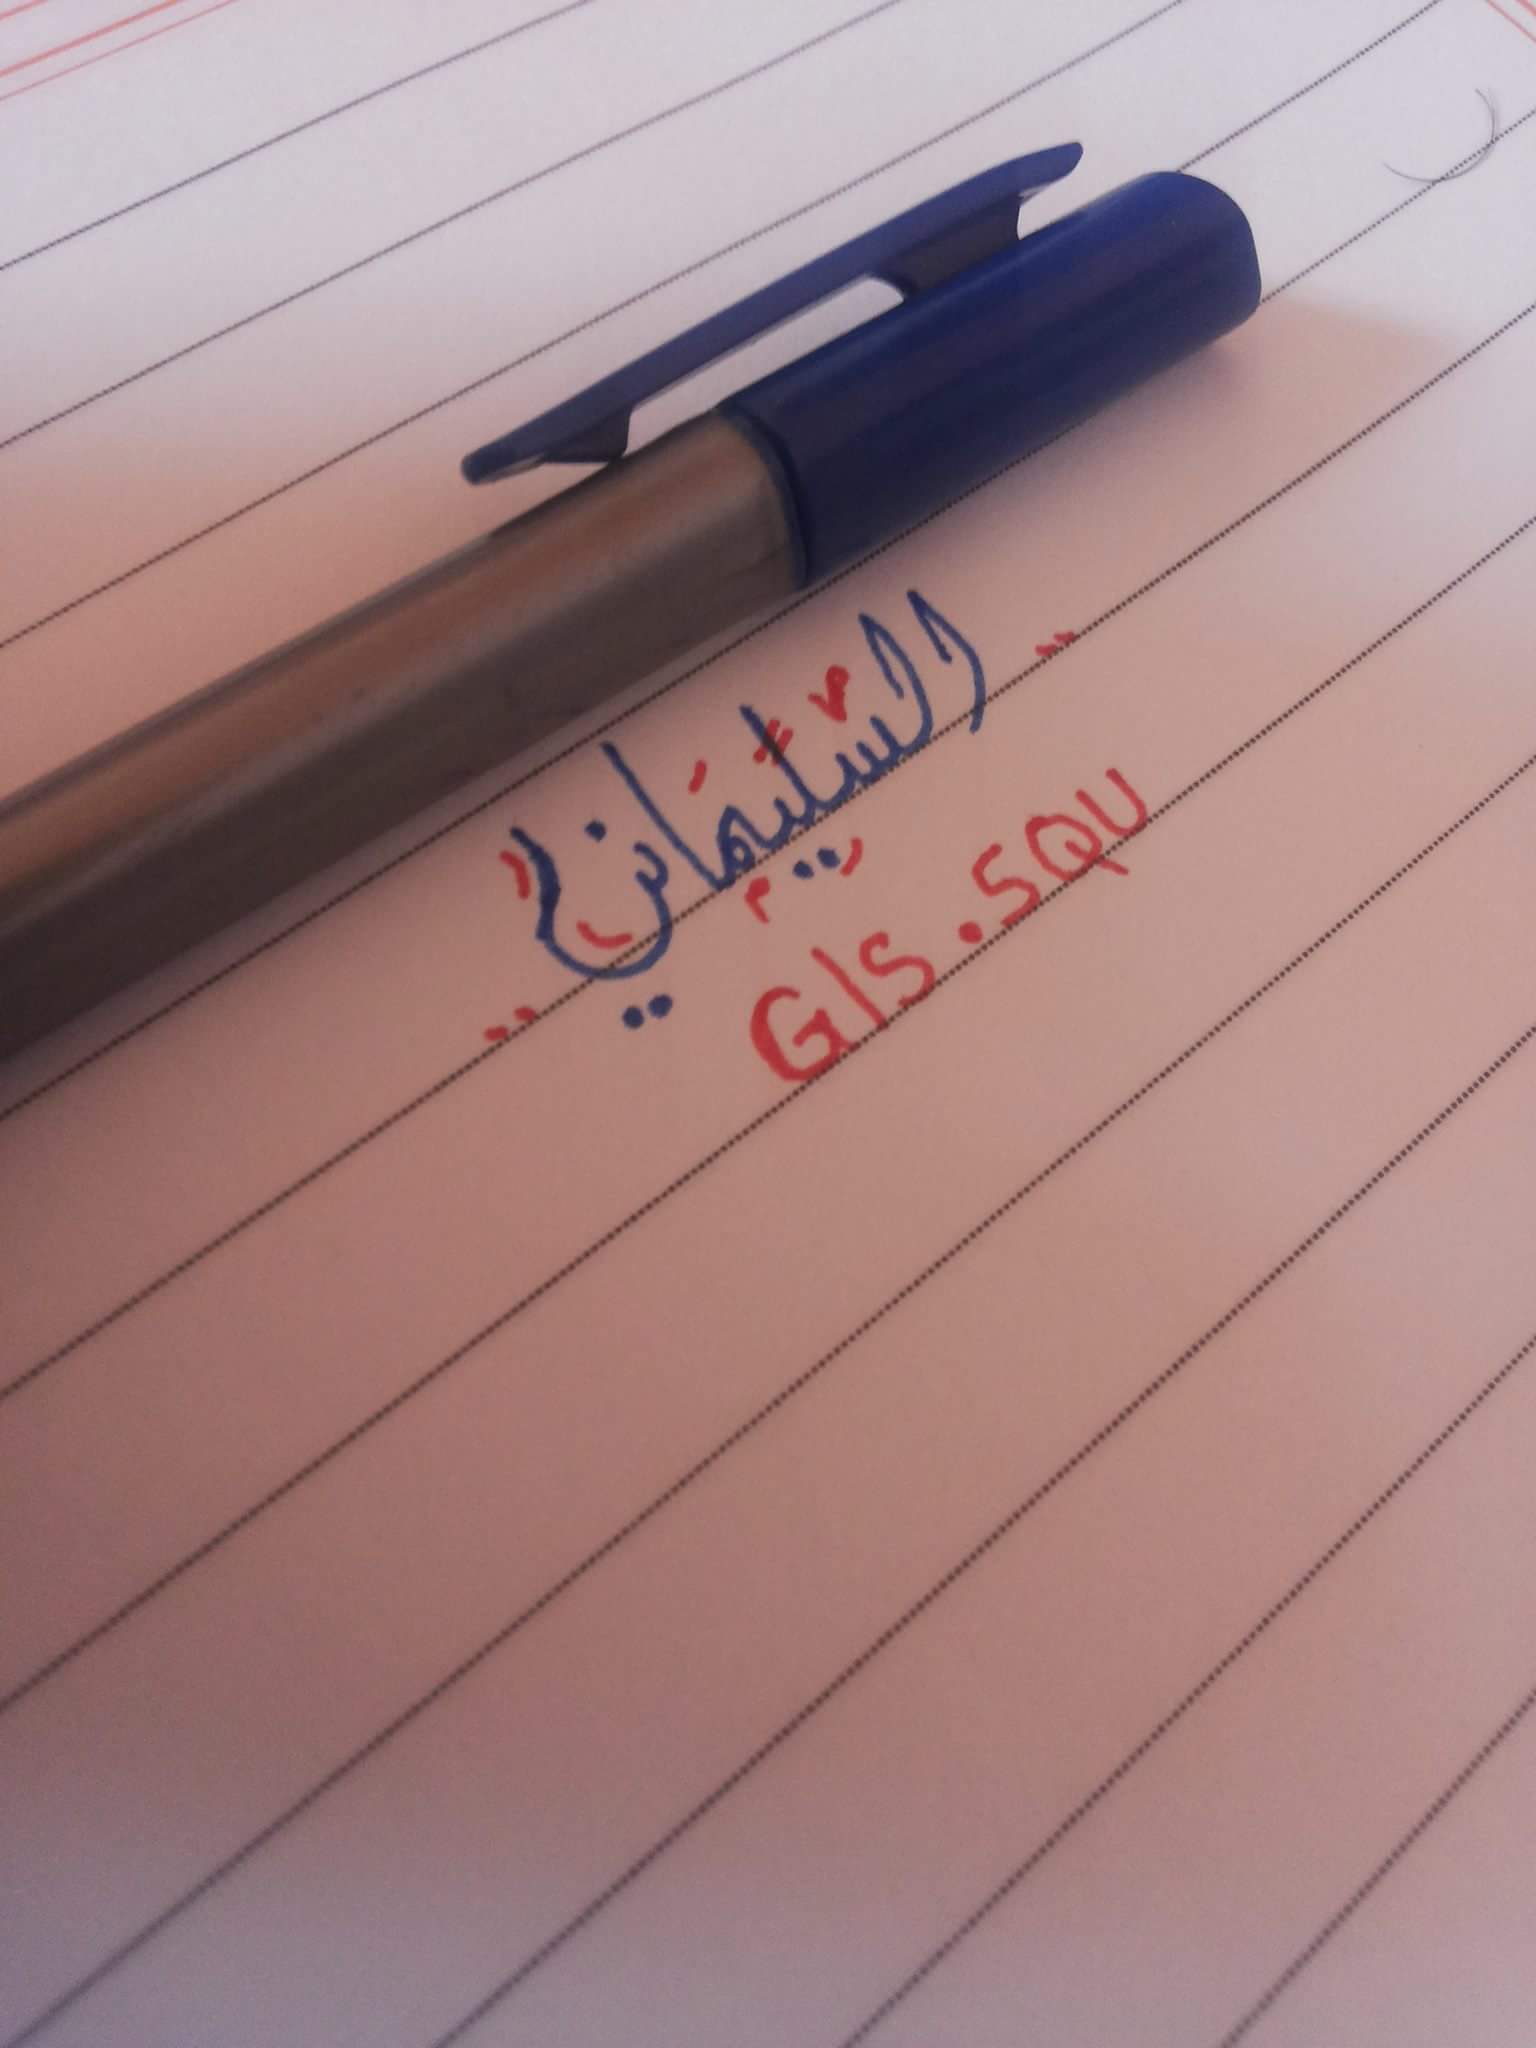 السليماني
G/S .SQU